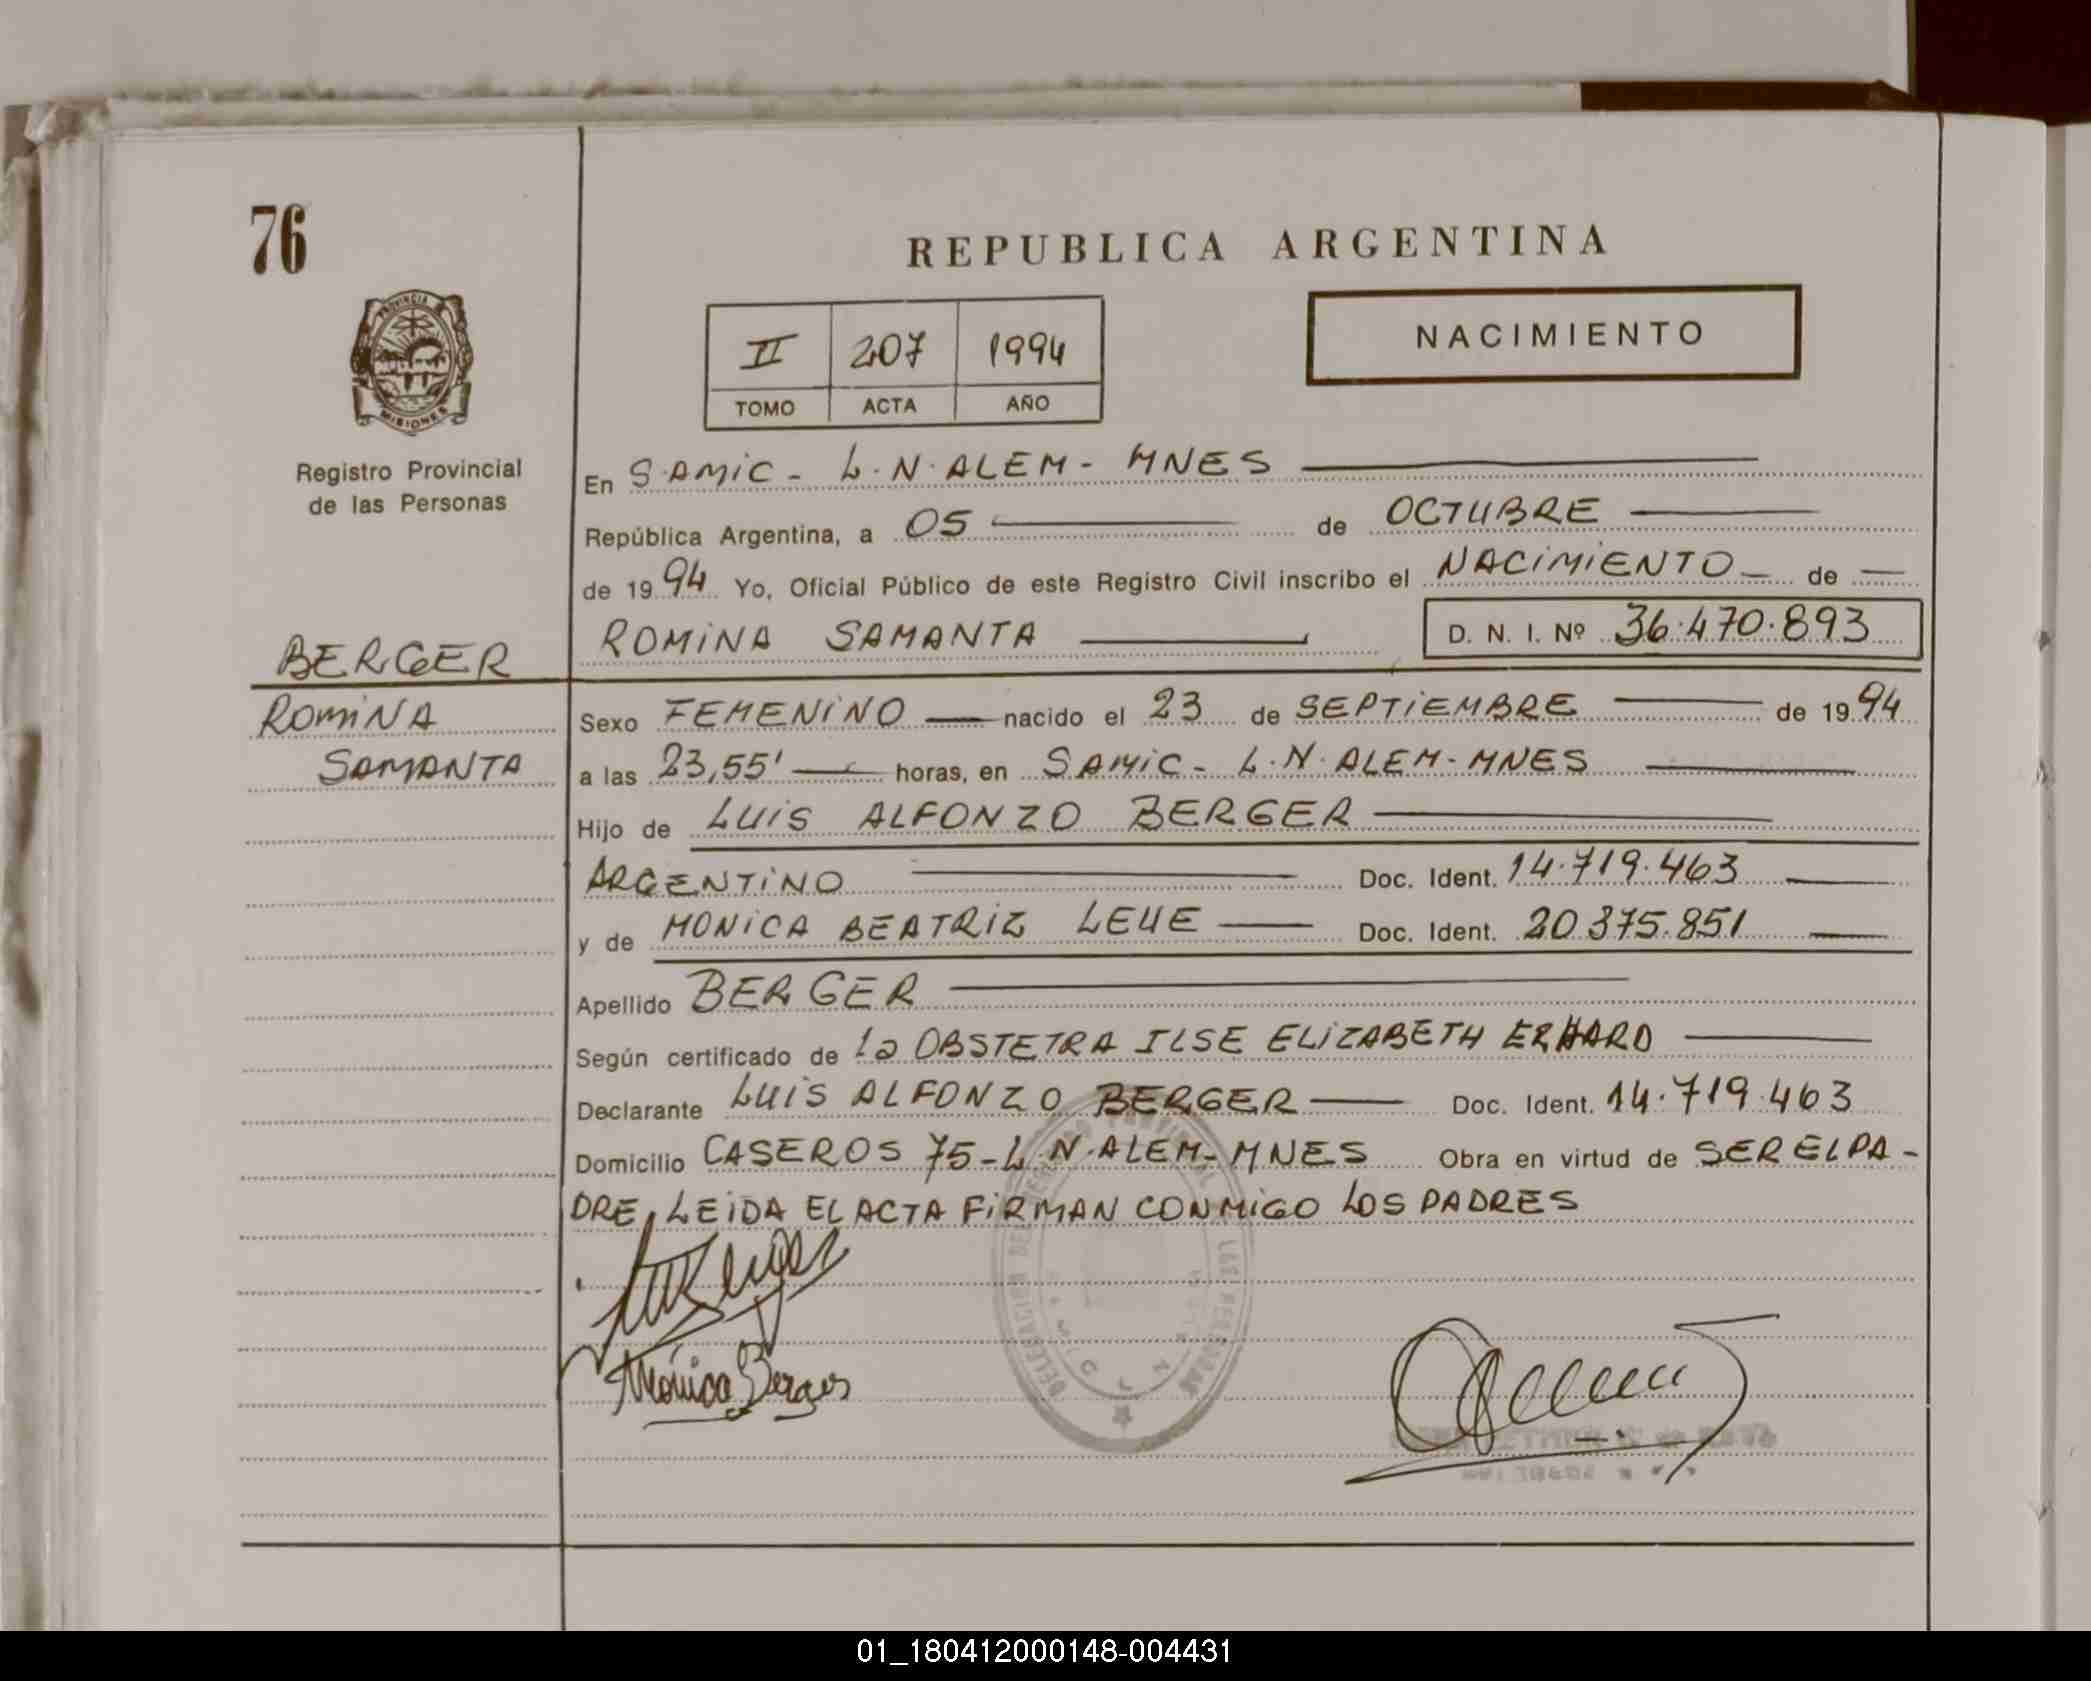 76
REPUBLICA ARGENTINA
PROVINCIA
MISIONES
II 207 1994
TOMO ACTA AÑO
NACIMIENTO
Registro Provincial
de las Personas
En S.AMiC - L.N.ALEM - MNES
República Argentina, a 05 de OCTUBRE
de 1994 Yo, Oficial Público de este Registro Civil inscribo el NACiMiENTO de
BERGER
ROMiNA SAMANTA D. N. I. Nº 36.470.893
ROMiNA
SAMANTA
Sexo FEMENiNO nacido el 23 de SEPTiEMBRE de 1994
a las 23,55' horas, en SAMiC - L.N.ALEM - MNES
Hijo de LUiS ALFONZO BERGER
ARGENTiNO Doc. Ident. 14.719.463
y de MONiCA BEATRiZ LEUE Doc. Ident. 20.375.851
Apellido BERGER
Según certificado de La OBSTETRA ILSE ELiZABETH ERHARD
Declarante LUiS ALFONZO BERGER Doc. Ident. 14.719.463
Domicilio CASEROS 75 - L.N.ALEM - MNES Obra en virtud de SER EL PA-
DRE, LEiDA EL ACTA FiRMAN CONMiGO LOS PADRES
Berger
Mónica Berger
01_180412000148-004431